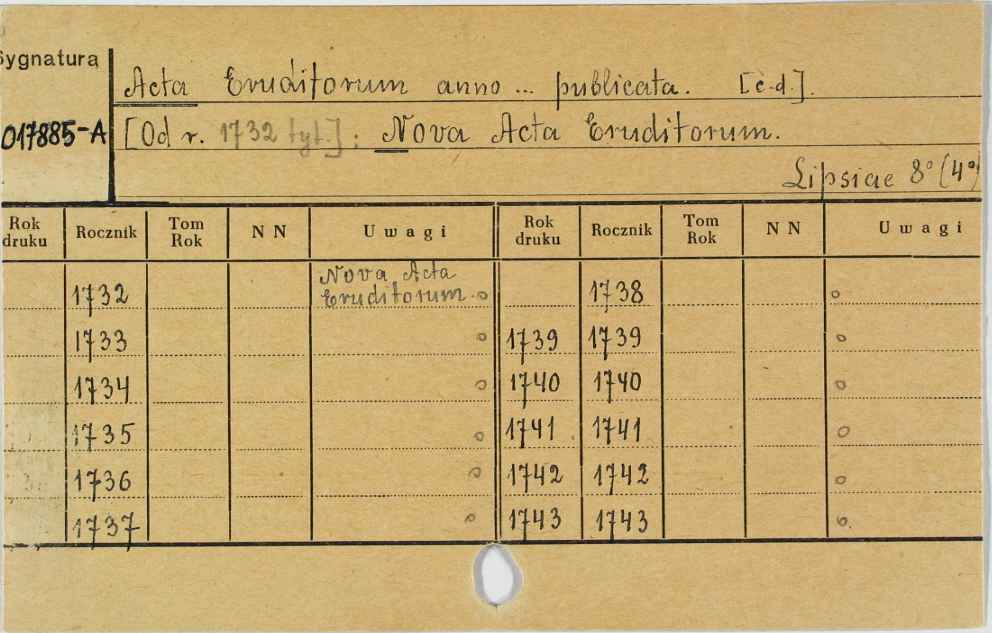 Sygnatura
Acta Eruditorum anno ... publicata. [c.d.].
017885-A
[Od r. 1732 tyt.]: Nova Acta Eruditorum.
Lipsiae 8° (4°)
Rok druku Rocznik Tom Rok NN Uwagi Rok druku Rocznik Tom Rok NN Uwagi
Nova Acta
1732 Eruditorum. o 1738 o
1733 o 1739 1739 o
1734 o 1740 1740 o
1735 o 1741 1741 o
1736 o 1742 1742 o
1737 o 1743 1743 o.